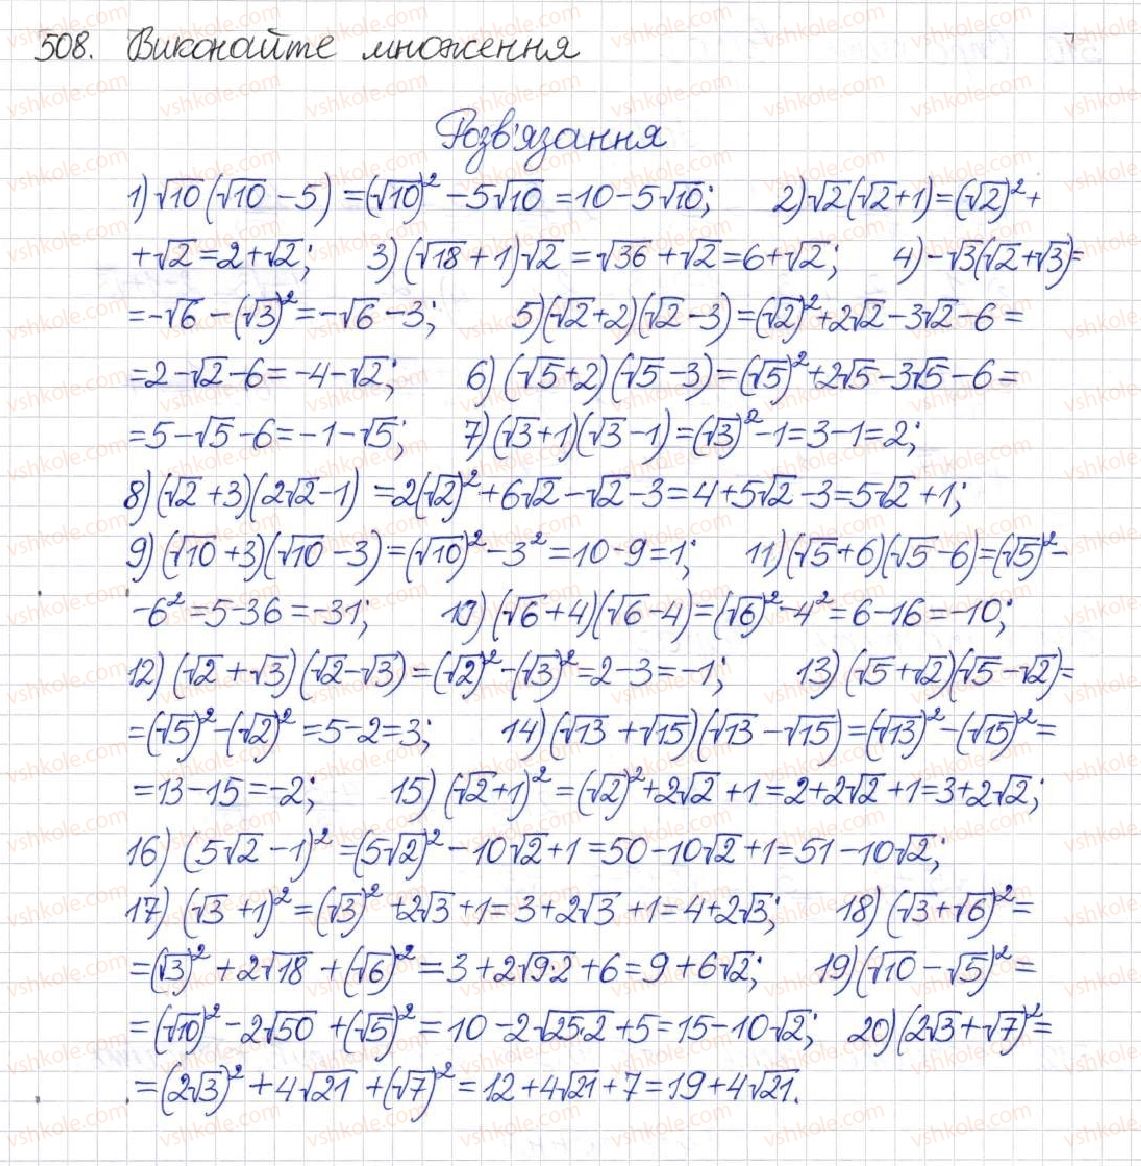 508. Виконайте множення
Розв'язання
1) √10(√10 - 5) = (√10)² - 5√10 = 10 - 5√10; 2) √2(√2+1) = (√2)² +
+ √2 = 2 + √2; 3) (√18 + 1)√2 = √36 + √2 = 6 + √2; 4) -√3(√2+√3) =
= -√6 - (√3)² = -√6 - 3; 5) (√2+2)(√2-3) = (√2)² + 2√2 - 3√2 - 6 =
= 2 - √2 - 6 = -4 - √2; 6) (√5+2)(√5-3) = (√5)² + 2√5 - 3√5 - 6 =
= 5 - √5 - 6 = -1 - √5; 7) (√3+1)(√3-1) = (√3)² - 1 = 3 - 1 = 2;
8) (√2+3)(2√2-1) = 2(√2)² + 6√2 - √2 - 3 = 4 + 5√2 - 3 = 5√2 + 1;
9) (√10+3)(√10-3) = (√10)² - 3² = 10 - 9 = 1; 11) (√5+6)(√5-6) = (√5)² -
- 6² = 5 - 36 = -31; 10) (√6+4)(√6-4) = (√6)² - 4² = 6 - 16 = -10;
12) (√2+√3)(√2-√3) = (√2)² - (√3)² = 2 - 3 = -1; 13) (√5+√2)(√5-√2) =
= (√5)² - (√2)² = 5 - 2 = 3; 14) (√13+√15)(√13-√15) = (√13)² - (√15)² =
= 13 - 15 = -2; 15) (√2+1)² = (√2)² + 2√2 + 1 = 2 + 2√2 + 1 = 3 + 2√2;
16) (5√2-1)² = (5√2)² - 10√2 + 1 = 50 - 10√2 + 1 = 51 - 10√2;
17) (√3+1)² = (√3)² + 2√3 + 1 = 3 + 2√3 + 1 = 4 + 2√3; 18) (√3+√6)² =
= (√3)² + 2√18 + (√6)² = 3 + 2√9·2 + 6 = 9 + 6√2; 19) (√10-√5)² =
= (√10)² - 2√50 + (√5)² = 10 - 2√25·2 + 5 = 15 - 10√2; 20) (2√3+√7)² =
= (2√3)² + 4√21 + (√7)² = 12 + 4√21 + 7 = 19 + 4√21.